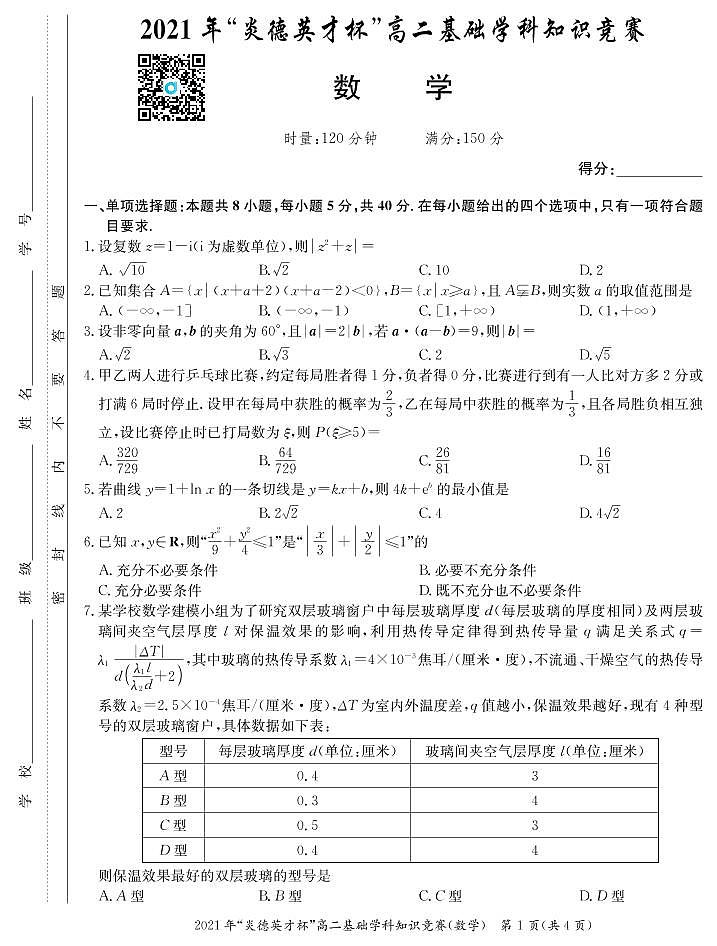 2021 年“炎德英才杯”高二基础学科知识竞赛
数 学
时量:120 分钟 满分:150 分
得分:
一、单项选择题:本题共 8 小题,每小题 5 分,共 40 分. 在每小题给出的四个选项中,只有一项符合题
目要求.
1. 设复数 z=1-i(i 为虚数单位),则|z²+z|=
A. √10 B. √2 C. 10 D. 2
2. 已知集合 A={x|(x+a+2)(x+a-2)<0},B={x|x≥a},且 A⫋B,则实数 a 的取值范围是
A. (-∞,-1] B. (-∞,-1) C. [1,+∞) D. (1,+∞)
3. 设非零向量 a,b 的夹角为 60°,且|a|=2|b|,若 a·(a-b)=9,则|b|=
A. √2 B. √3 C. 2 D. √5
4. 甲乙两人进行乒乓球比赛,约定每局胜者得 1 分,负者得 0 分,比赛进行到有一人比对方多 2 分或
打满 6 局时停止. 设甲在每局中获胜的概率为 2/3,乙在每局中获胜的概率为 1/3,且各局胜负相互独
立,设比赛停止时已打局数为 ξ,则 P(ξ≥5)=
A. 320/729 B. 64/729 C. 26/81 D. 16/81
5. 若曲线 y=1+ln x 的一条切线是 y=kx+b,则 4k+eᵇ 的最小值是
A. 2 B. 2√2 C. 4 D. 4√2
6. 已知 x,y∈R,则“x²/9+y²/4≤1”是“|x/3|+|y/2|≤1”的
A. 充分不必要条件 B. 必要不充分条件
C. 充分必要条件 D. 既不充分也不必要条件
7. 某学校数学建模小组为了研究双层玻璃窗户中每层玻璃厚度 d(每层玻璃的厚度相同)及两层玻
璃间夹空气层厚度 l 对保温效果的影响,利用热传导定律得到热传导量 q 满足关系式 q=
λ₁ |ΔT|/(d(λ₁l/λ₂d+2)),其中玻璃的热传导系数 λ₁=4×10⁻³焦耳/(厘米·度),不流通、干燥空气的热传导
系数 λ₂=2.5×10⁻⁴焦耳/(厘米·度),ΔT 为室内外温度差,q 值越小,保温效果越好,现有 4 种型
号的双层玻璃窗户,具体数据如下表:
型号 每层玻璃厚度 d(单位:厘米) 玻璃间夹空气层厚度 l(单位:厘米)
A 型 0.4 3
B 型 0.3 4
C 型 0.5 3
D 型 0.4 4
则保温效果最好的双层玻璃的型号是
A. A 型 B. B 型 C. C 型 D. D 型
2021 年“炎德英才杯”高二基础学科知识竞赛(数学) 第 1 页(共 4 页)
学 校 班 级 姓 名 学 号
密 封 线 内 不 要 答 题